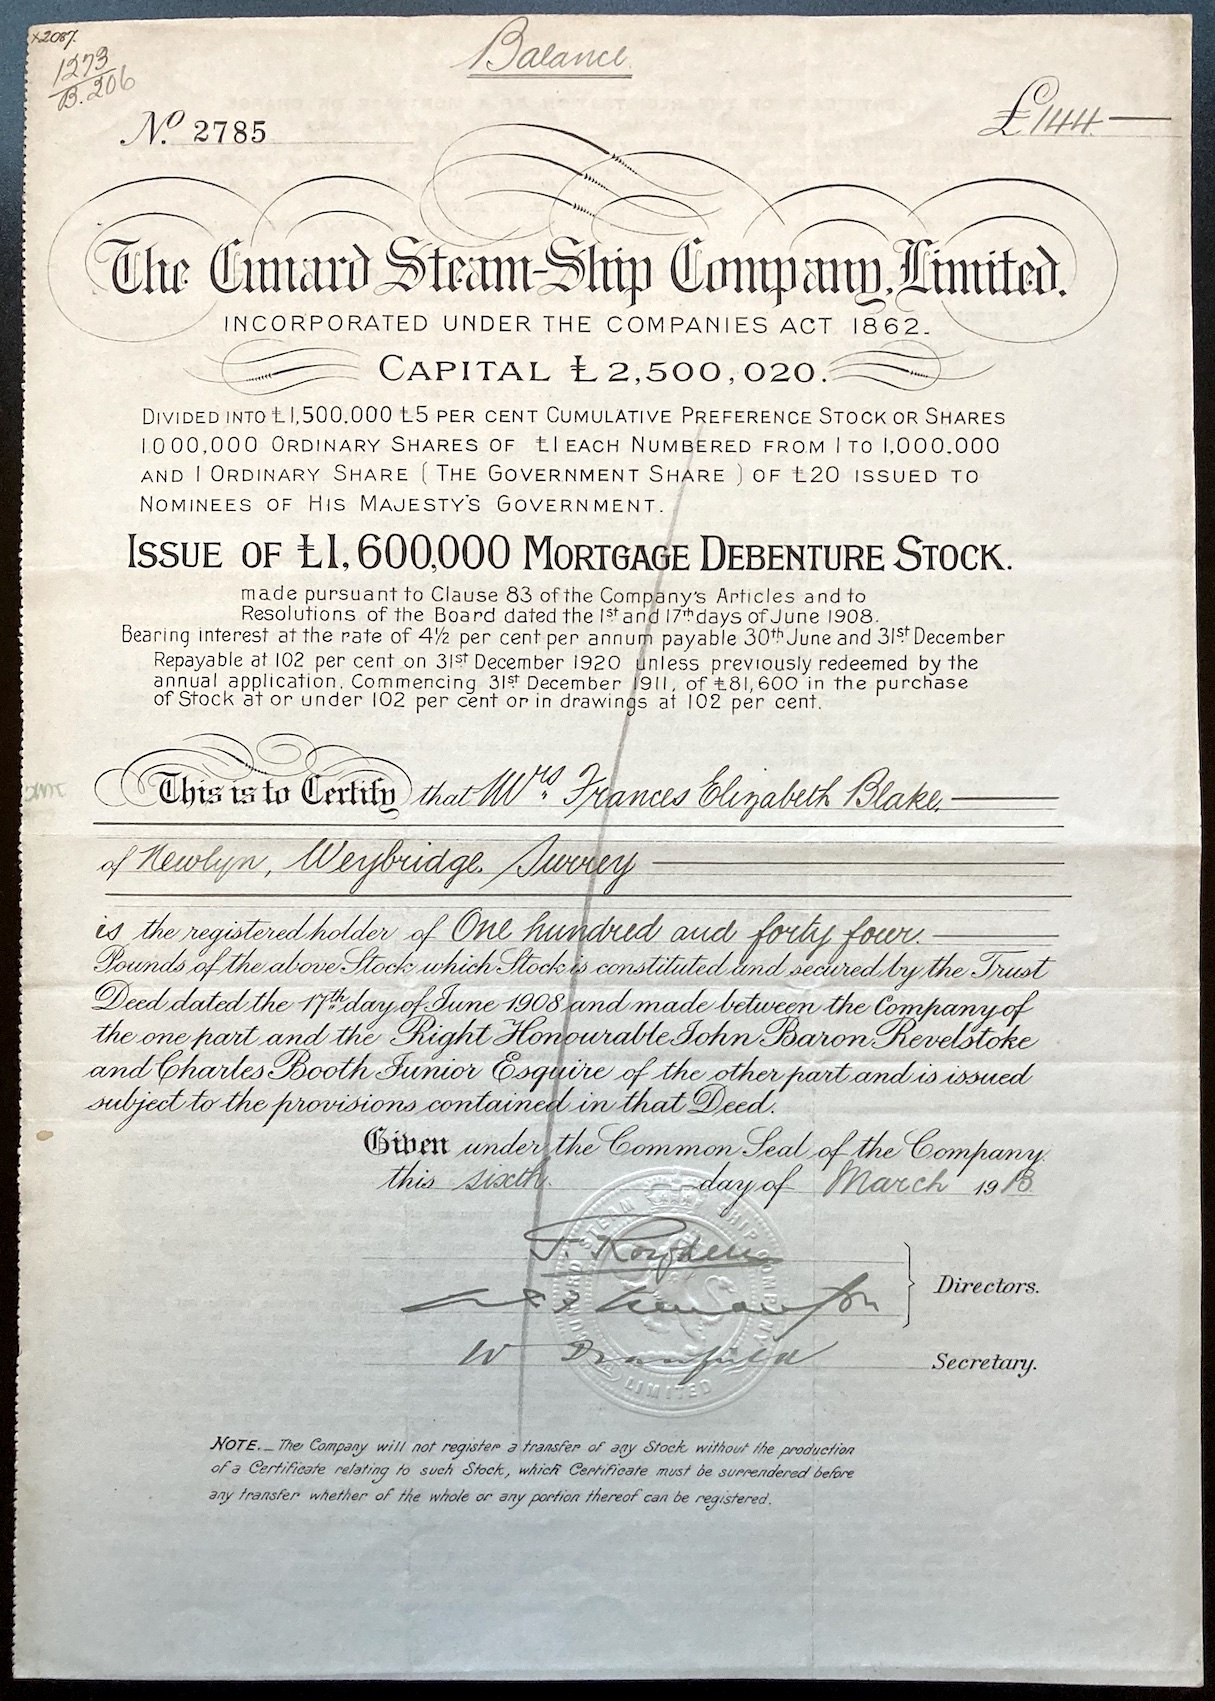 x2087.
1273
B.206
Balance
No. 2785
£144
The Cunard Steam-Ship Company, Limited.
INCORPORATED UNDER THE COMPANIES ACT 1862.
CAPITAL £2,500,020.
DIVIDED INTO £1,500,000 £5 PER CENT CUMULATIVE PREFERENCE STOCK OR SHARES
1,000,000 ORDINARY SHARES OF £1 EACH NUMBERED FROM 1 TO 1,000,000
AND 1 ORDINARY SHARE (THE GOVERNMENT SHARE) OF £20 ISSUED TO
NOMINEES OF HIS MAJESTY'S GOVERNMENT.
ISSUE OF £1,600,000 MORTGAGE DEBENTURE STOCK.
made pursuant to Clause 83 of the Company's Articles and to
Resolutions of the Board dated the 1st and 17th days of June 1908.
Bearing interest at the rate of 4½ per cent per annum payable 30th June and 31st December
Repayable at 102 per cent on 31st December 1920 unless previously redeemed by the
annual application, Commencing 31st December 1911, of £81,600 in the purchase
of Stock at or under 102 per cent or in drawings at 102 per cent.
This is to Certify that Mrs. Frances Elizabeth Blake,
of Newlyn, Weybridge, Surrey
is the registered holder of One hundred and forty four.
Pounds of the above Stock which Stock is constituted and secured by the Trust
Deed dated the 17th day of June 1908 and made between the Company of
the one part and the Right Honourable John Baron Revelstoke
and Charles Booth Junior Esquire of the other part and is issued
subject to the provisions contained in that Deed.
Given under the Common Seal of the Company
this sixth day of March 1913
T. Royden
Directors.
W Dranfield
Secretary.
CUNARD STEAM SHIP COMPANY
LIMITED
NOTE._ The Company will not register a transfer of any Stock without the production
of a Certificate relating to such Stock, which Certificate must be surrendered before
any transfer whether of the whole or any portion thereof can be registered.